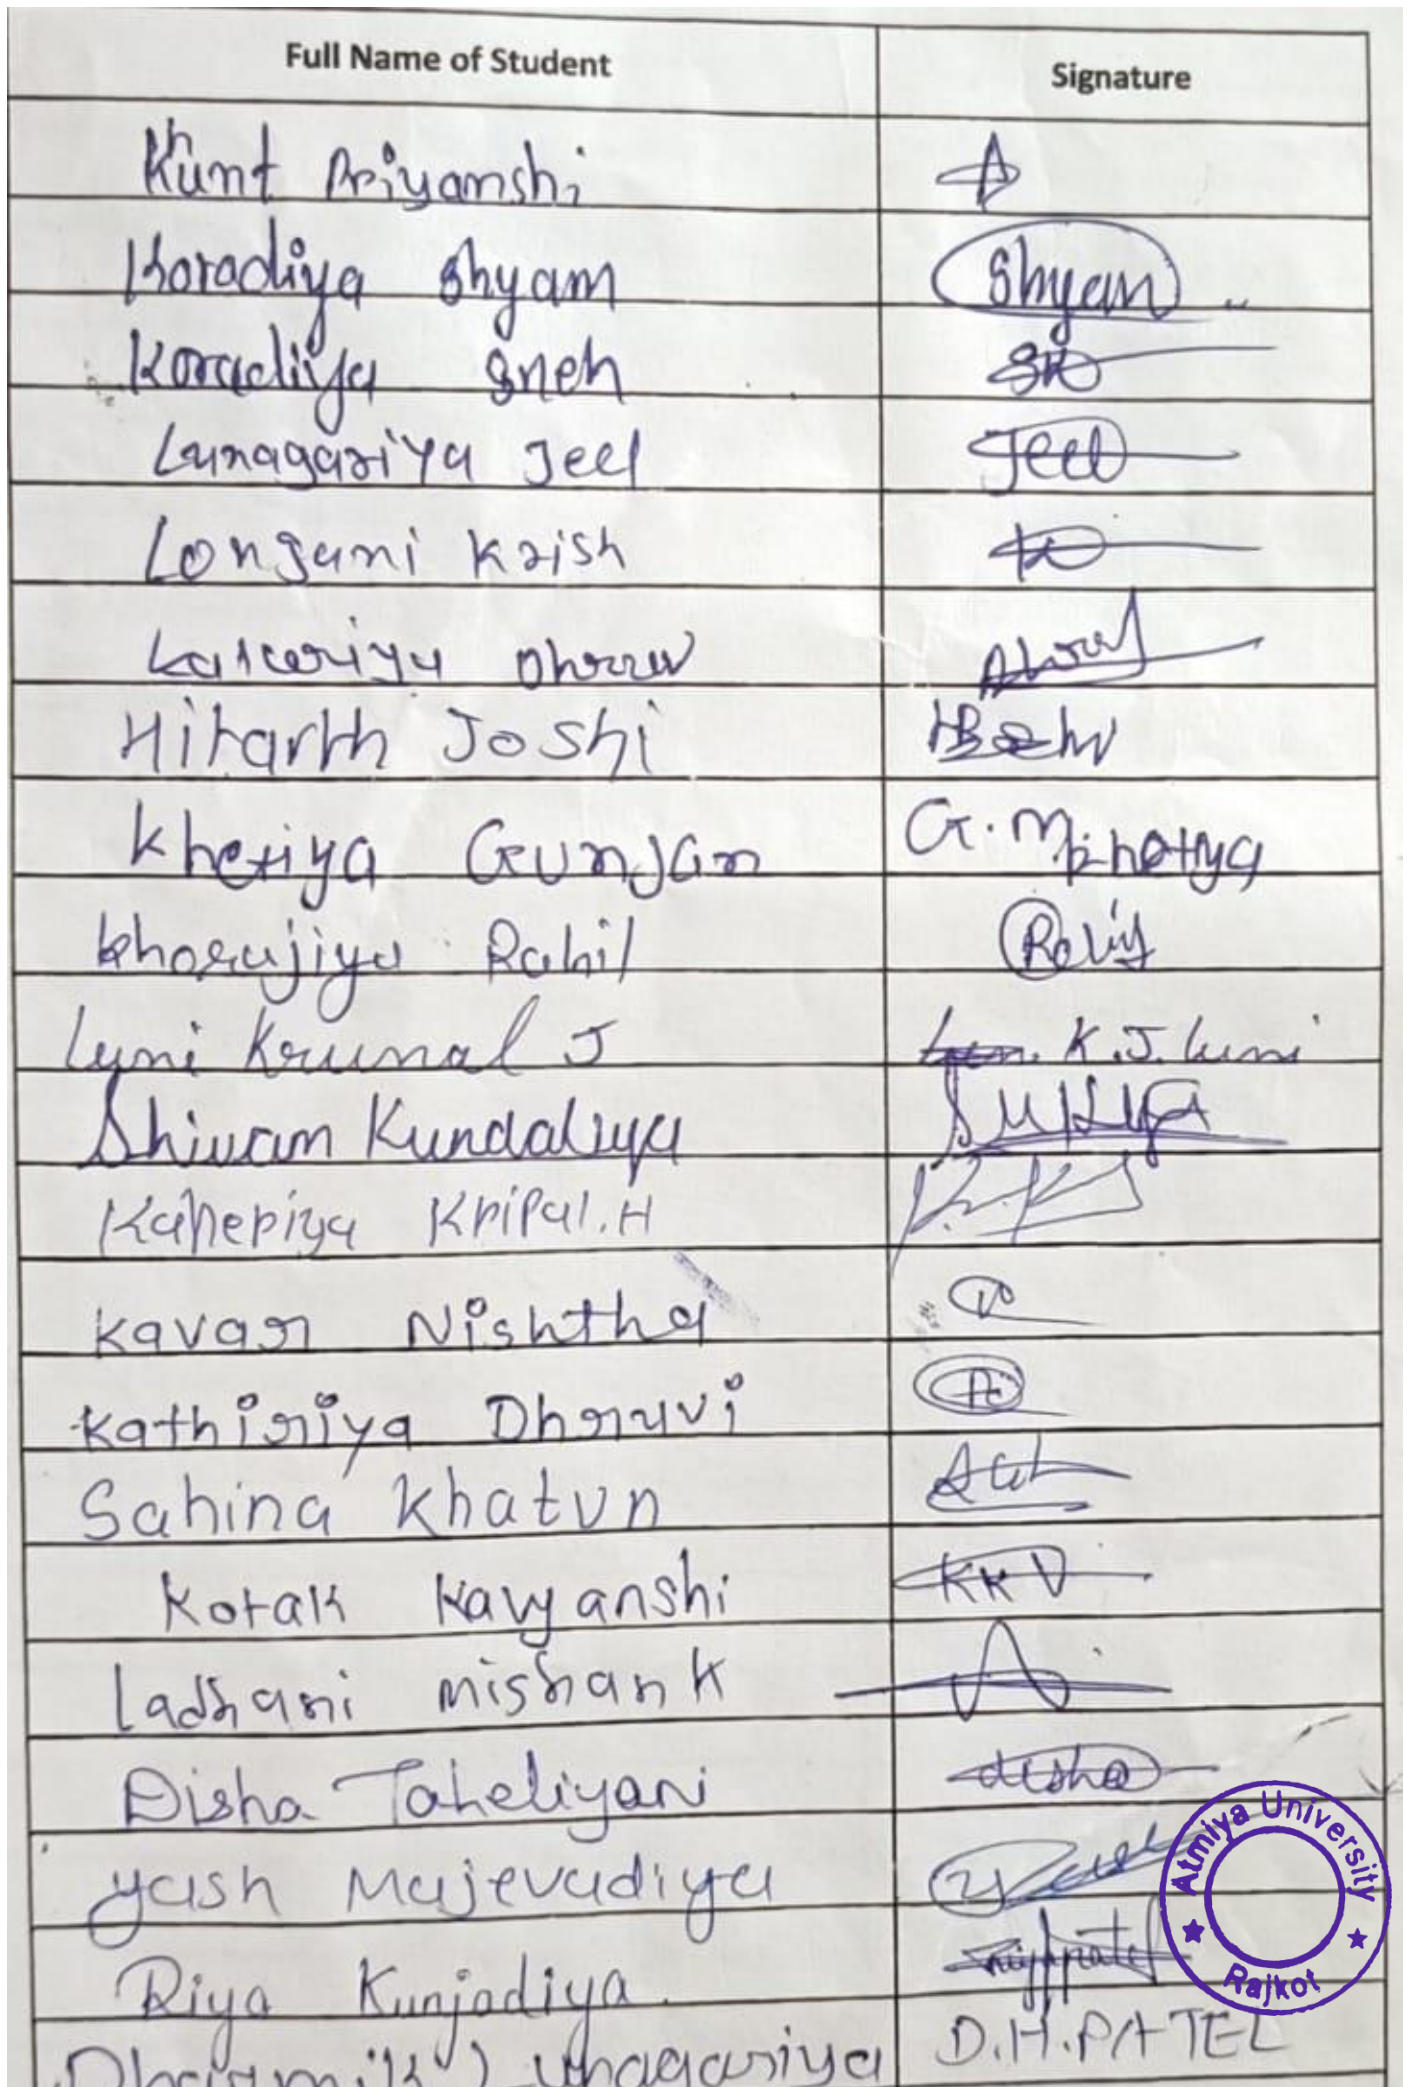 Full Name of Student Signature
Kunt Priyanshi
Koradiya Shyam Shyam
Koradiya Sneh SK
Lunagariya Jeel Jeel
Longani Krish
Dhruv
Hitarth Joshi
Khetiya Gunjan G. M. Khetiya
Rahil
Luni Krunal J K. J. Luni
Shivam Kundaliya
Kaneriya Kripal. H
Kavar Nishtha
Kathiriya Dhruvi
Sahina Khatun
Kotak Kavyanshi KKV
Ladhani Mishank
Disha Taheliyani disha
Yash Majevadiya
Riya Kunjadiya riyapatel
Dharmik Lunagariya D.H.PATEL
Atmiya University
Rajkot